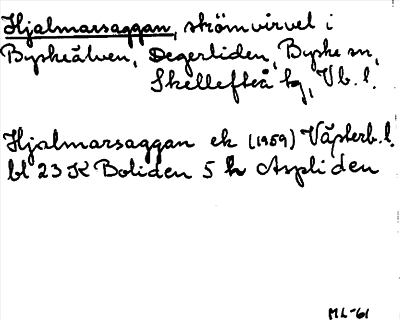 Hjalmarsaggan, strömvirvel i
Byskeälven, Degerliden, Byske sn,
Skellefteå kg, Vb. l.
Hjalmarsaggan ek (1959) Västerb. l.
bl 23 K Boliden 5 h Aspliden
ML-61